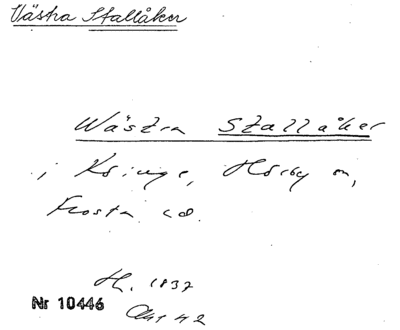 Västra Stallåker
Wästra Stallåker
i Köinge, Hörby sn,
Frosta hd.
H. 1837
Nr 10446
Akt 42